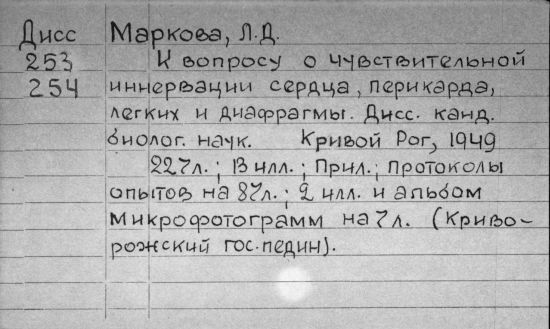 Дисс Маркова, Л.Д.
253 К вопросу о чувствительной
254 иннервации сердца, перикарда,
легких и диафрагмы. Дисс. канд.
биолог. наук. Кривой Рог, 1949
227л.; 13 илл.; Прил.; протоколы
опытов на 87л.; 2 илл. и альбом
микрофотограмм на 7 л. (Криво-
рожский гос. педин).